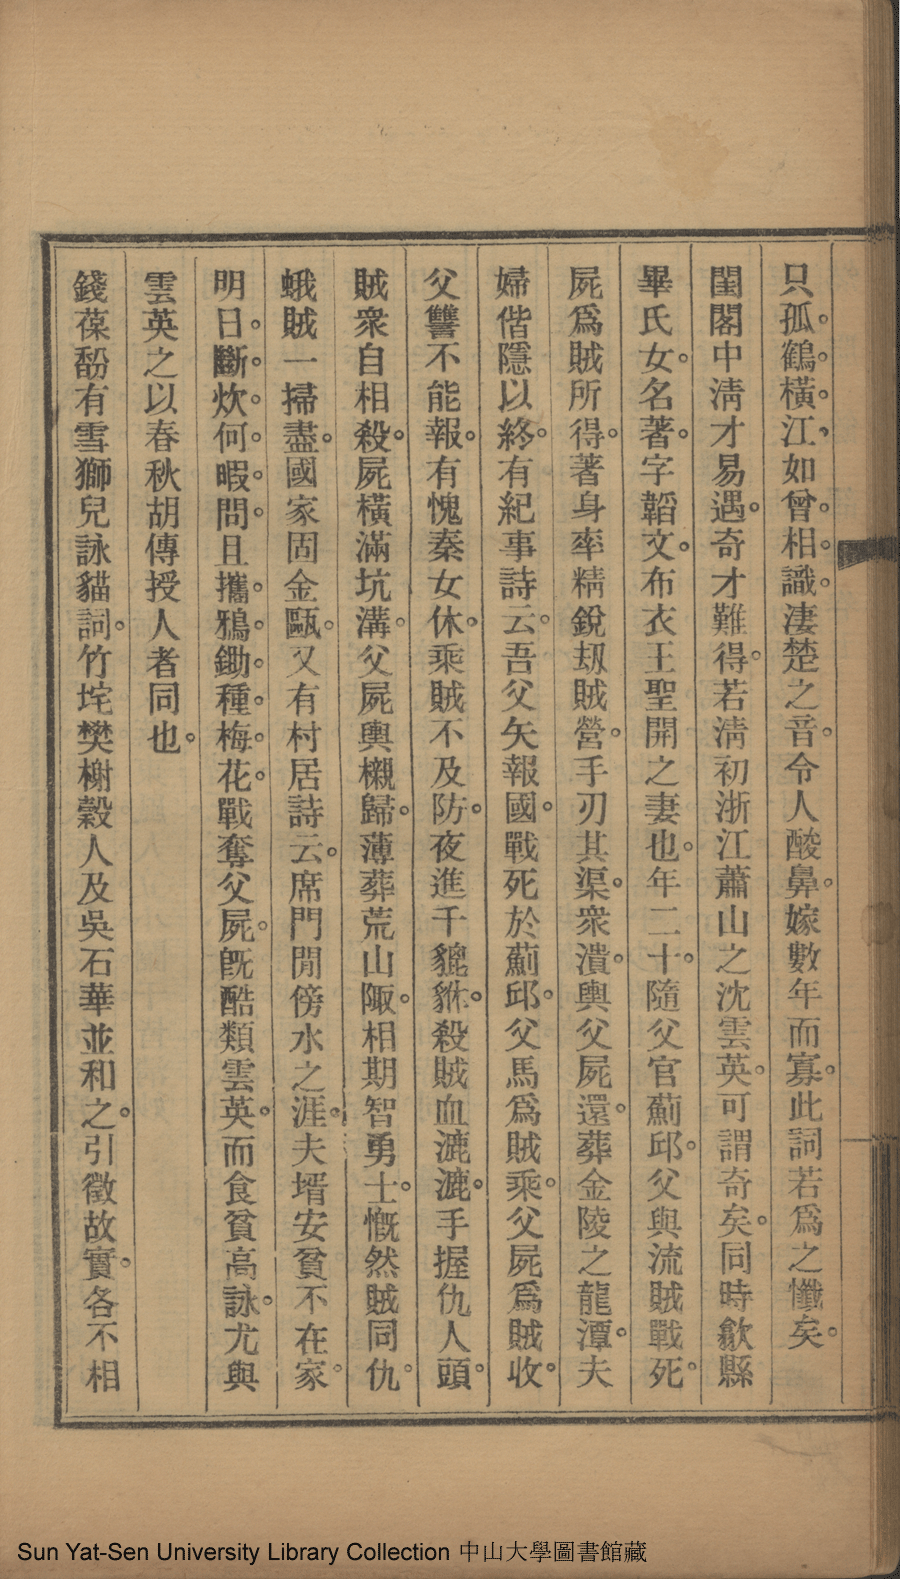 只孤。鶴。橫。江、如曾。相。識。淒楚之音。令人酸鼻。嫁數年而寡。此詞若爲之懺矣。
閨閣中淸才易遇。奇才難得。若淸初浙江蕭山之沈雲英。可謂奇矣。同時歙縣
畢氏女。名著。字韜文。布衣王聖開之妻也。年二十。隨父官薊邱。父與流賊戰死。
屍爲賊所得。著身率精銳刼賊營。手刃其渠。衆潰。輿父屍還。葬金陵之龍潭。夫
婦偕隱以終。有紀事詩云。吾父矢報國。戰死於薊邱。父馬爲賊乘。父屍爲賊收。
父讐不能報。有愧秦女休。乘賊不及防。夜進千貔貅。殺賊血漉漉。手握仇人頭。
賊衆自相殺。屍橫滿坑溝。父屍輿櫬歸。薄葬荒山陬。相期智勇士。慨然賊同仇。
蛾賊一掃盡。國家固金甌。又有村居詩云。席門閒傍水之涯。夫壻安貧不在家。
明日。斷。炊。何。暇。問。且攜。鴉。鋤。種。梅。花。戰奪父屍。旣酷類雲英。而食貧高詠。尤與
雲英之以春秋胡傳授人者同也。
錢葆馚有雪獅兒詠貓詞。竹垞樊榭穀人及吳石華並和之。引徵故實。各不相
Sun Yat-Sen University Library Collection 中山大學圖書館藏